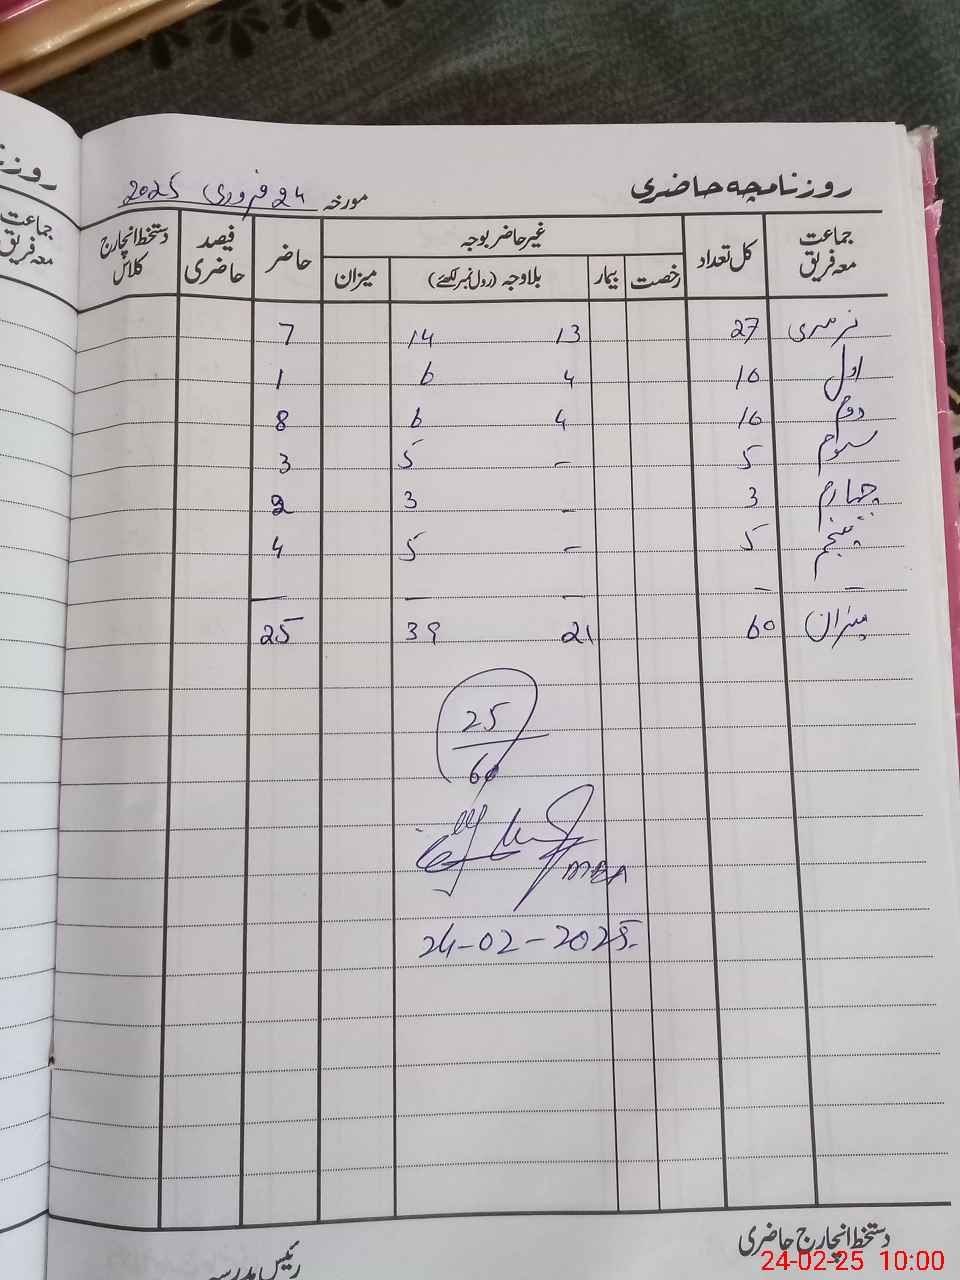 روزنامچہ حاضری
مورخہ 24 فروری 2025
جماعت معہ فریق کل تعداد غیر حاضر بوجہ حاضر فیصد حاضری دستخط انچارج کلاس
رخصت بیمار بلاوجہ (رول نمبر لکھئے) میزان
نرسری 27 13 14 7
اول 10 4 6 1
دوم 10 4 6 8
سوم 5 - 5 3
چہارم 3 - 3 2
پنجم 5 - 5 4
- - - - -
میزان 60 21 39 25
25
60
24-02-2025
دستخط انچارج حاضری
رئیس مدرسہ
24-02-25 10:00
روزنا
جماعت
معہ فریق